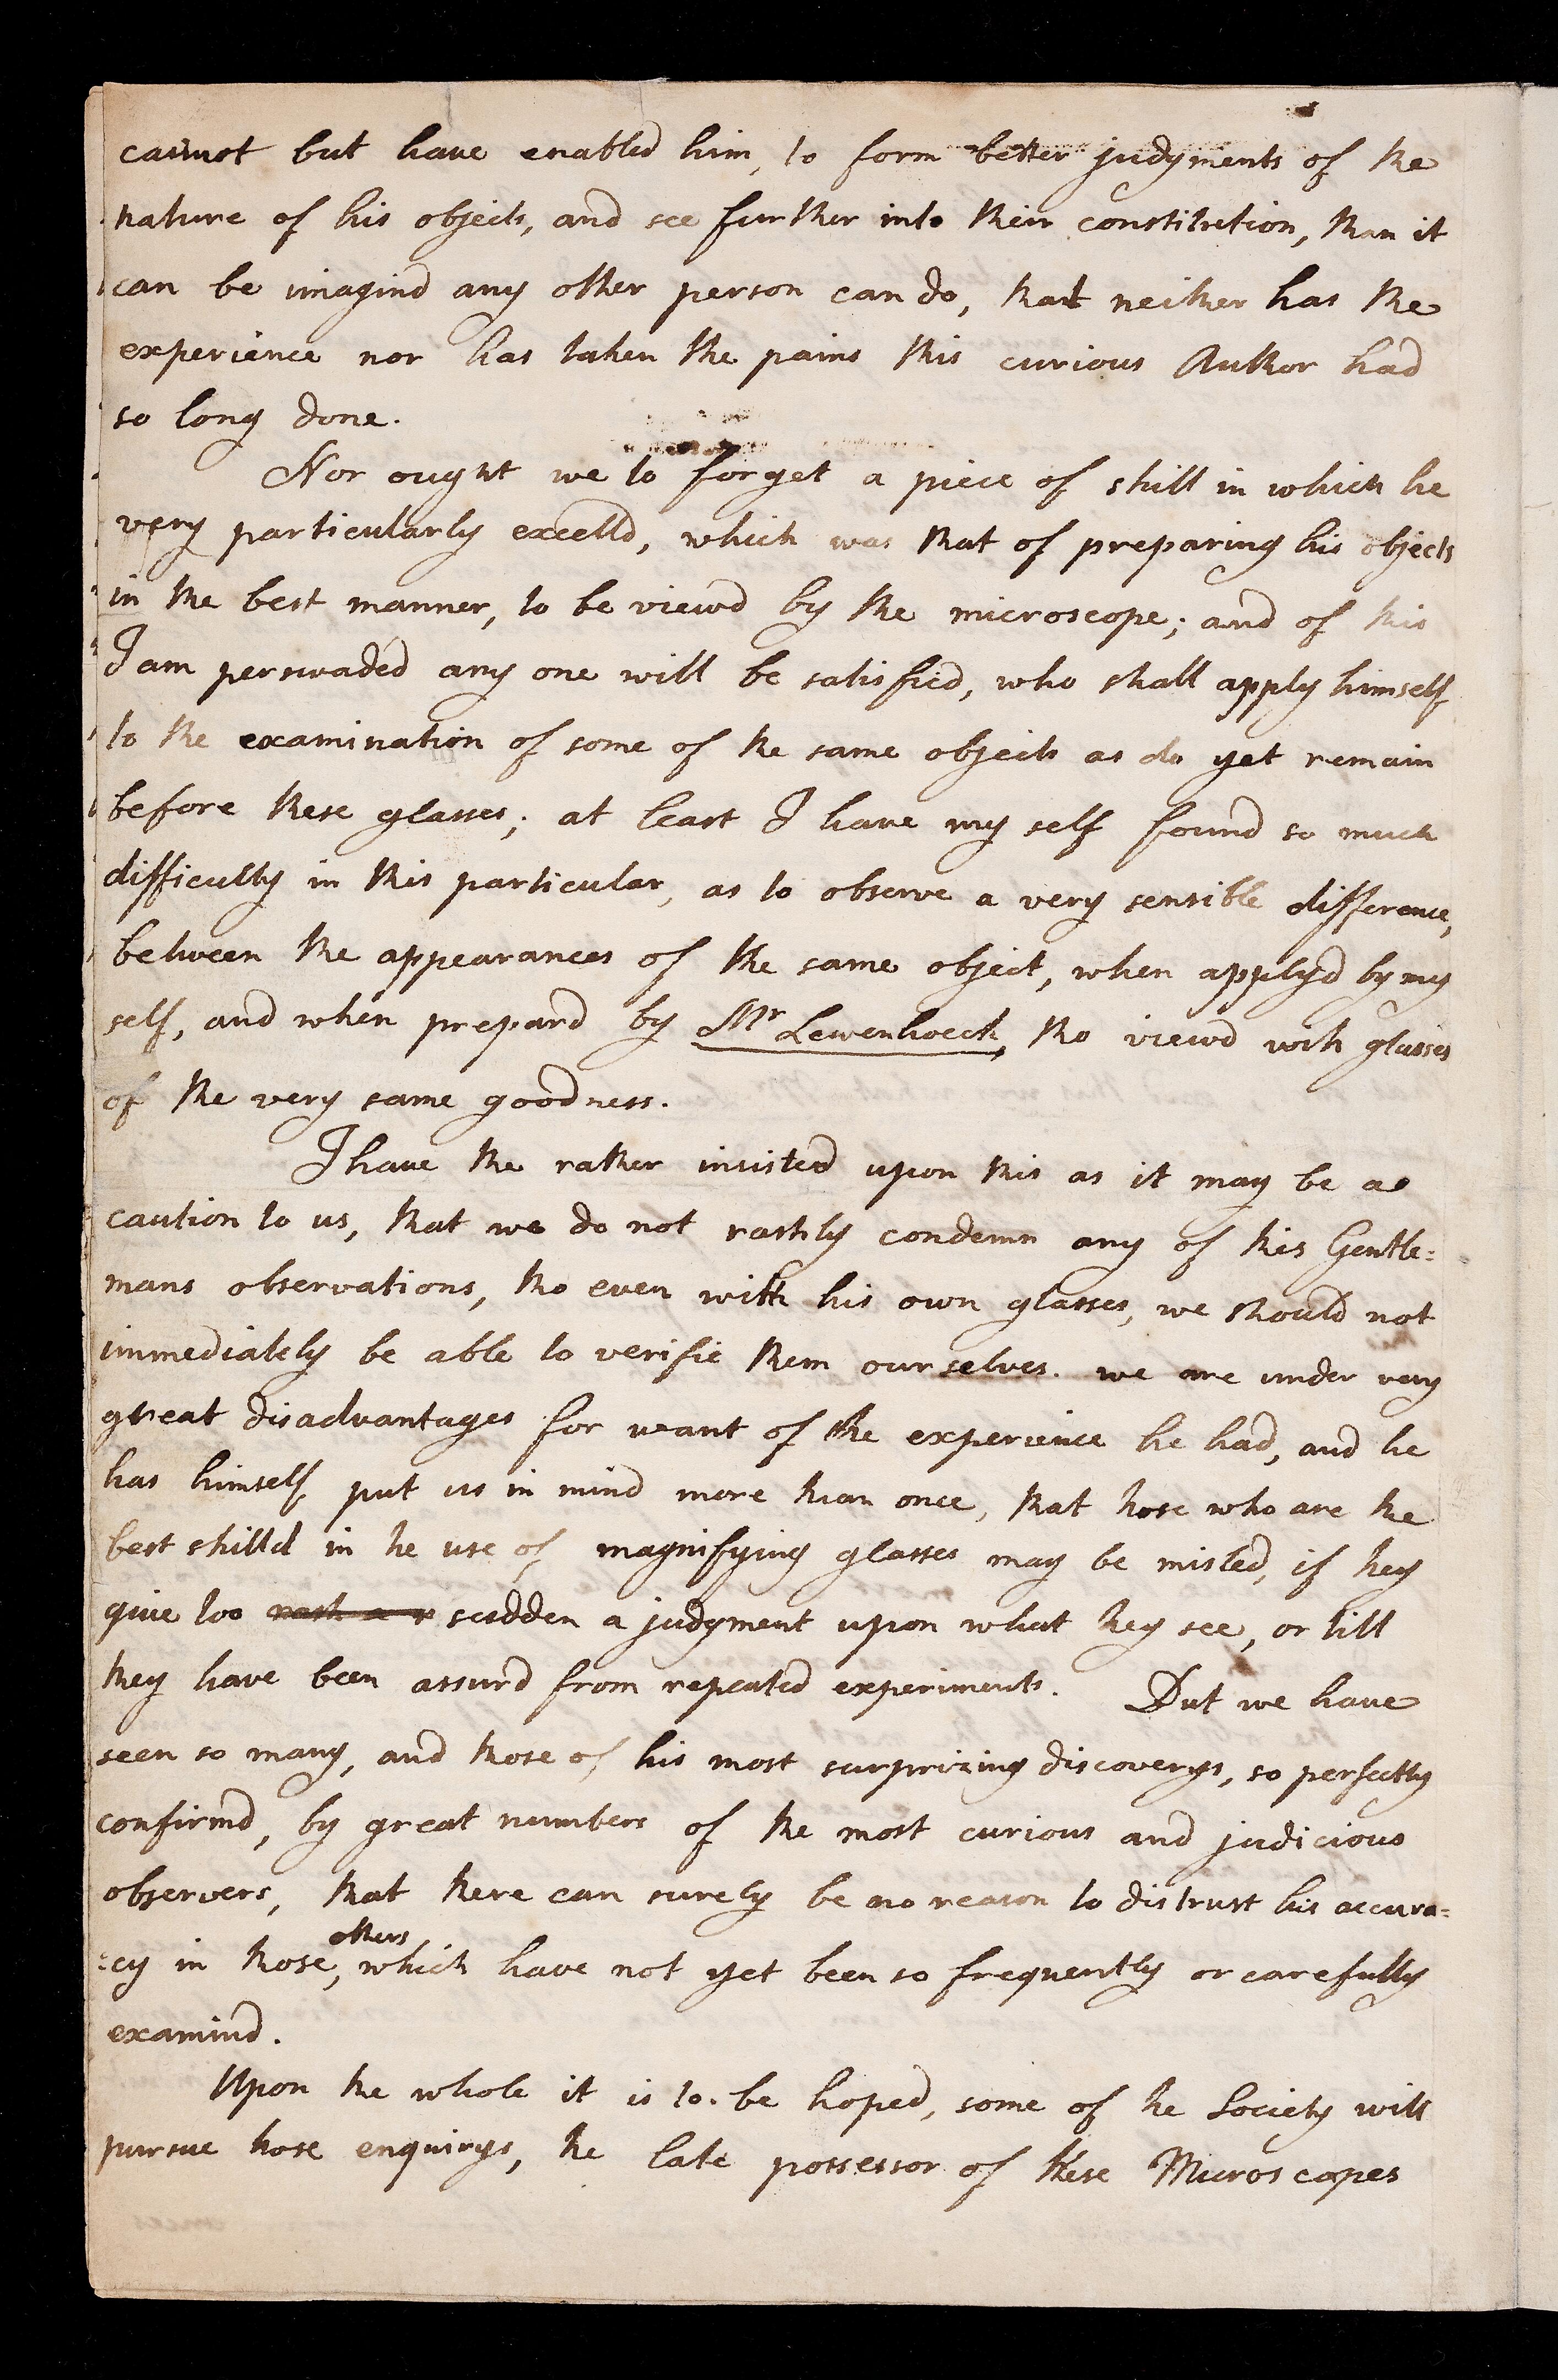 cannot but have enabled him, to form better judgments of the
nature of his objects, and see further into their constitution, than it
can be imagind any other person can do, that neither has the
experience nor has taken the pains this curious Author had
so long done.
Nor ought we to forget a piece of skill in which he
very particularly excelld, which was that of preparing his objects
in the best manner, to be viewd by the microscope; and of this
I am perswaded any one will be satisfied, who shall apply himself
to the examination of some of the same objects as do yet remain
before these glasses; at least I have my self found so much
difficulty in this particular, as to observe a very sensible difference,
between the appearances of the same object, when applyd by my
self, and when prepard by Mr Lewenhoeck, tho viewd with glasses
of the very same goodness.
I have the rather insisted upon this as it may be a
caution to us, that we do not rashly condemn any of this Gentle=
mans observations, tho even with his own glasses, we should not
immediately be able to verifie them ourselves. we are under very
great disadvantages for want of the experience he had, and he
has himself put us in mind more than once, that those who are the
best skilld in the use of magnifying glasses may be misled, if they
give too rash a r sudden a judgment upon what they see, or till
they have been assurd from repeated experiments. But we have
seen so many, and those of his most surprizing discoverys, so perfectly
confirmd, by great numbers of the most curious and judicious
observers, that there can surely be no reason to distrust his accura=
=cy in those, others which have not yet been so frequently or carefully
examind.
Upon the whole it is to be hoped, some of the Society will
pursue those enquirys, the late possessor of these Microscopes